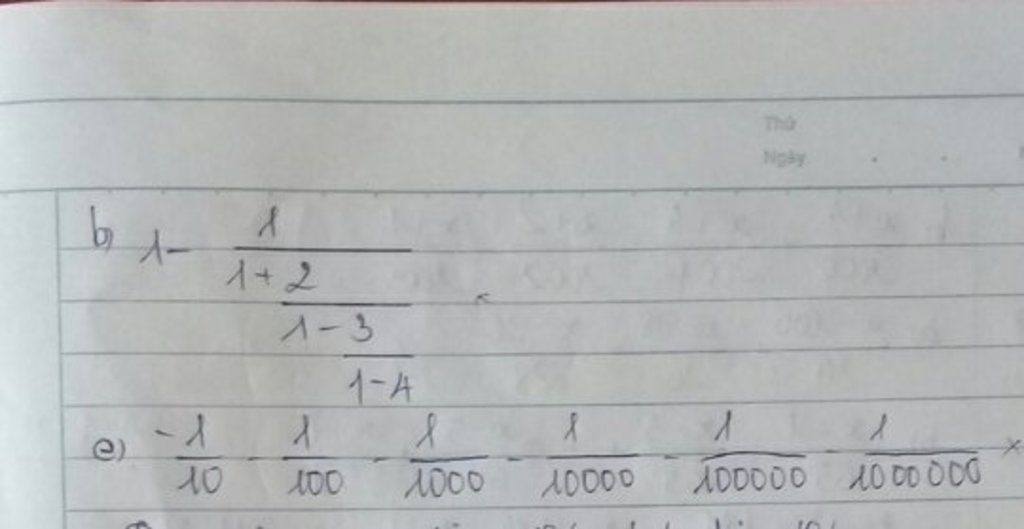 Thứ
Ngày
b) 1 - 1
1 + 2
1 - 3
1 - 4
e) -1/10 - 1/100 - 1/1000 - 1/10000 - 1/100000 - 1/1000000